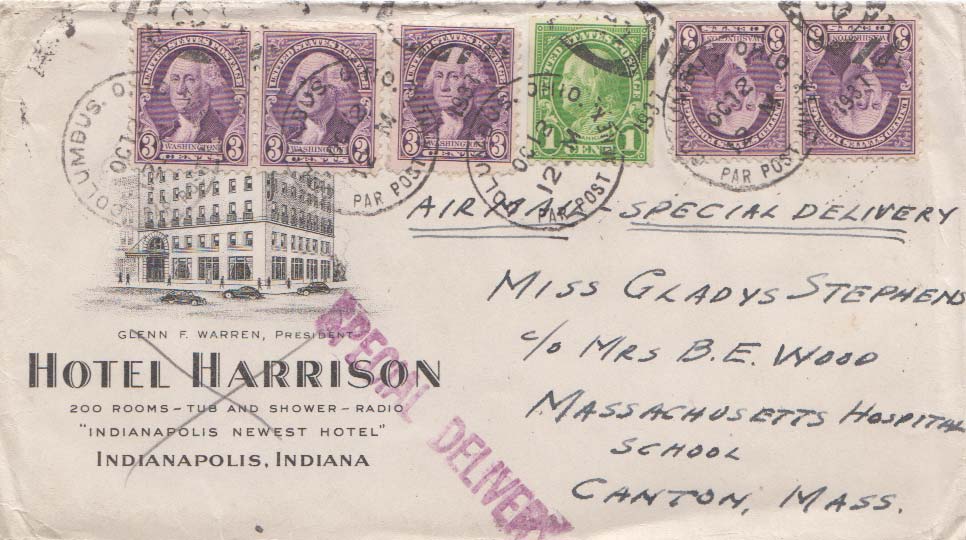 UNITED STATES POSTAGE
3 WASHINGTON 3
CENTS
UNITED STATES POSTAGE
3 WASHINGTON 3
CENTS
UNITED STATES POSTAGE
3 WASHINGTON 3
CENTS
UNITED STATES POSTAGE
1 CENT 1
3 WASHINGTON 3
3 WASHINGTON 3
COLUMBUS, O.
OCT
PAR POST
1937
COLUMBUS, O.
OCT 2
12 M
PAR POST
1937
OCT 2
M
1937
PAR POST
AIRMAIL - SPECIAL DELIVERY
MISS GLADYS STEPHENS
c/o MRS B.E. WOOD
MASSACHUSETTS HOSPITAL
SCHOOL
CANTON, MASS.
GLENN F. WARREN, PRESIDENT
HOTEL HARRISON
200 ROOMS – TUB AND SHOWER – RADIO
"INDIANAPOLIS NEWEST HOTEL"
INDIANAPOLIS, INDIANA
SPECIAL DELIVERY